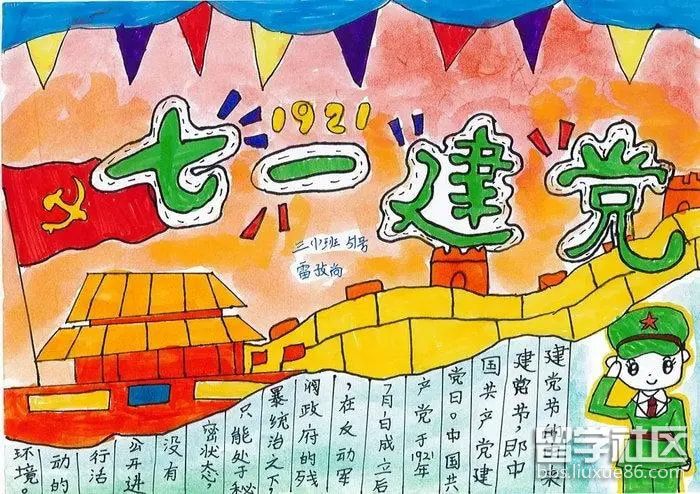 1921
七一建党
雷孜尚
建党节的
建党节,即中
国共产党建
党日。中国共
产党于1921年
7月白成立后
，在反动军
阀政府的残
暴统治之下，
只能处于秘
密状态，
没有
公开进
行活
动的
环境。
留学社区
bbs.liuxue86.com